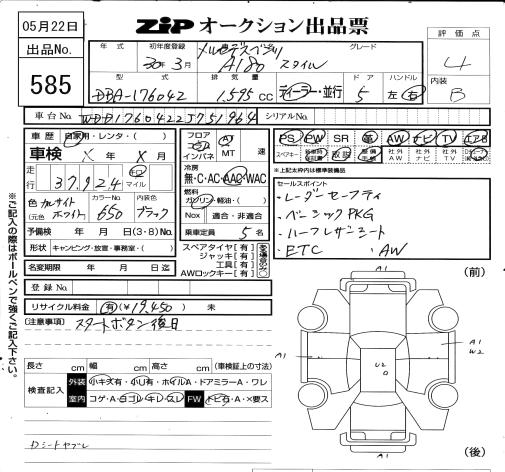 05月22日
ZIP オークション出品票
出品No.
585
年式
初年度登録
グレード
30年3月
メルセデスベンツ
A180 スタイル
評価点
4
型式
排気量
ドア
ハンドル
DBA-176042
1,595cc
ディーラー・並行
5
左・右
内装
B
車台No.
WDD1760422J751964
シリアルNo.
車歴
自家用・レンタ・( )
車検
X年X月
走行
37,924
km
マイル
色
カルサイトホワイト
(元色 )
カラーNo.
650
内装色
ブラック
予備検
年 月 日(3・8)No.
形状
キャンピング・放置・事務室・( )
名変期限
年 月 日迄
登録No.
フロア
コラム
インパネ
AT
MT
速
冷房
無・C・AC・AAC・WAC
燃料
ガソリン・軽油・( )
Nox
適合・非適合
乗車定員
5名
スペアタイヤ[有]
ジャッキ[有]
工具[有]
AWロックキー[有]
ある場合のみ○
PS
PW
SR
革
AW
ナビ
TV
エアB
スペアキー
保証書
取説
整備手帳
社外AW
社外ナビ
社外TV
*上記太枠内は標準装備品
セールスポイント
・レーダーセーフティ
・ベーシックPKG
・ハーフレザーシート
・ETC ・AW
リサイクル料金
有(¥19,450) 未
(注意事項)
スタートボタン後日
長さ cm
幅 cm
高さ cm
(車検証上の寸法)
検査記入
外装
小キズ有・小U有・ホイルA・ドアミラーA・ワレ
室内
コゲ・A・ヨゴレ・キレ・スレ
FW
トビ石・A・×要ス
Dシートヤブレ
(前)
A1
A1
A1
W2
U2
A1
(後)
※ご記入の際はボールペンで強くご記入下さい。